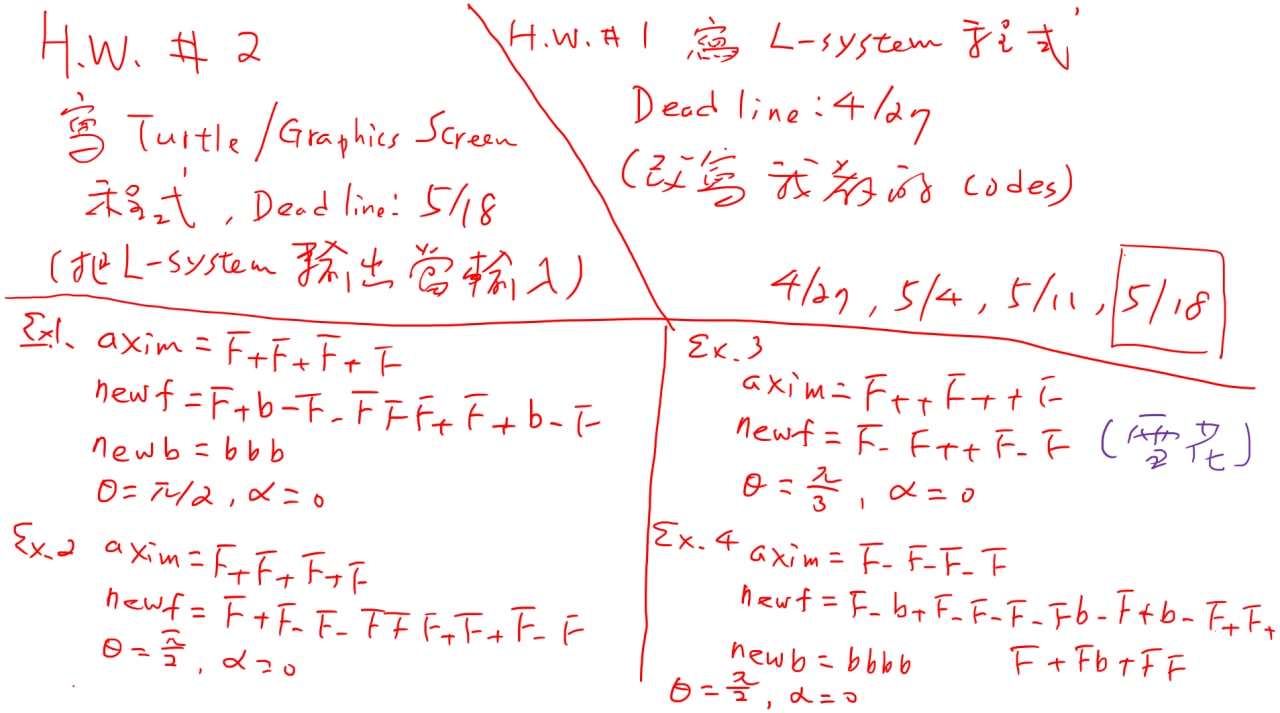 H.W. # 2
寫 Turtle/Graphics Screen
程式, Deadline: 5/18
(把 L-system 輸出當輸入)
H.W. # 1 寫 L-system 程式
Deadline: 4/27
(改寫我教的 codes)
4/27, 5/4, 5/11, 5/18
Ex1. axim = F+F+F+F
newf = F+b-F-FFF+F+b-F
newb = bbb
θ = π/2, α = 0
Ex.2 axim = F+F+F+F
newf = F+F-F-FFF+F+F-F
θ = π/2, α = 0
Ex.3
axim = F++F++F
newf = F-F++F-F (雪花)
θ = π/3, α = 0
Ex.4 axim = F-F-F-F
newf = F-b+F-F-F-Fb-F+b-F+F+
F+Fb+FF
newb = bbbb
θ = π/2, α = 0